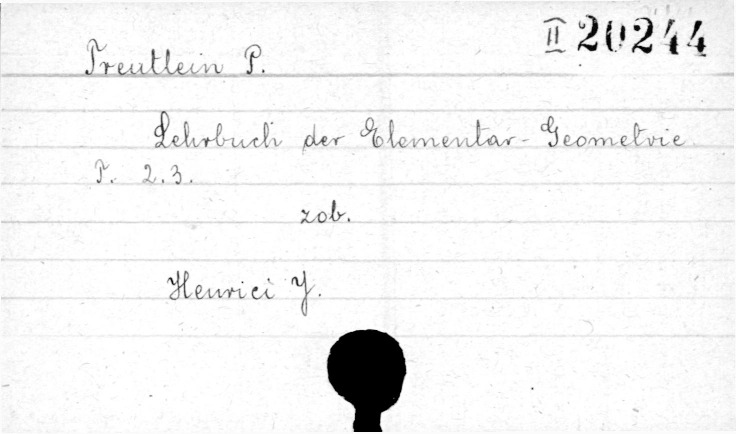 II 20244
Treutlein P.
Lehrbuch der Elementar-Geometrie
T. 2.3.
zob.
Henrici J.